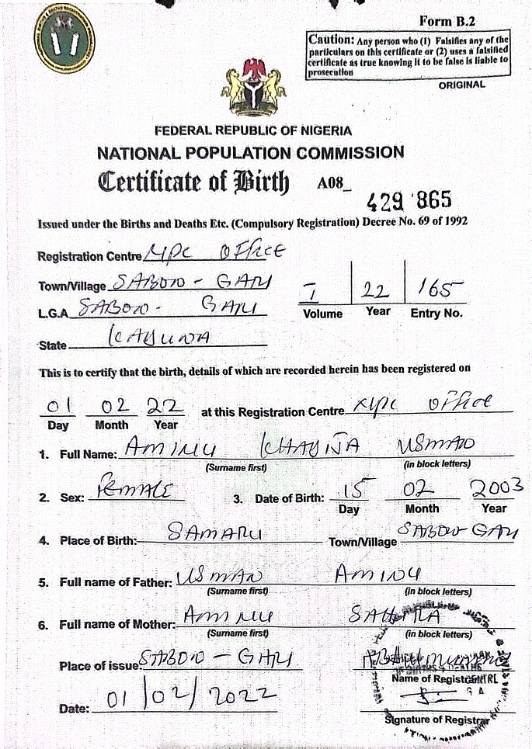 Form B.2
Caution: Any person who (1) Falsifies any of the
particulars on this certificate or (2) uses a falsified
certificate as true knowing it to be false is liable to
prosecution
ORIGINAL
FEDERAL REPUBLIC OF NIGERIA
NATIONAL POPULATION COMMISSION
Certificate of Birth A08_ 429 865
Issued under the Births and Deaths Etc. (Compulsory Registration) Decree No. 69 of 1992
Registration Centre NPC OFFICE
Town/Village SABON - GARI
L.G.A SABON - GARI
I 22 165
Volume Year Entry No.
State KADUNA
This is to certify that the birth, details of which are recorded herein has been registered on
01 02 22 at this Registration Centre NPC OFFICE
Day Month Year
1. Full Name: AMINU USMAN
(Surname first) (in block letters)
2. Sex: FEMALE 3. Date of Birth: 15 02 2003
Day Month Year
4. Place of Birth: SAMARU Town/Village SABON GARI
5. Full name of Father: USMAN AMINU
(Surname first) (in block letters)
6. Full name of Mother: AMINU
(Surname first) (in block letters)
Place of issue: SABON - GARI
Name of Registrar
Date: 01/02/2022
Signature of Registrar